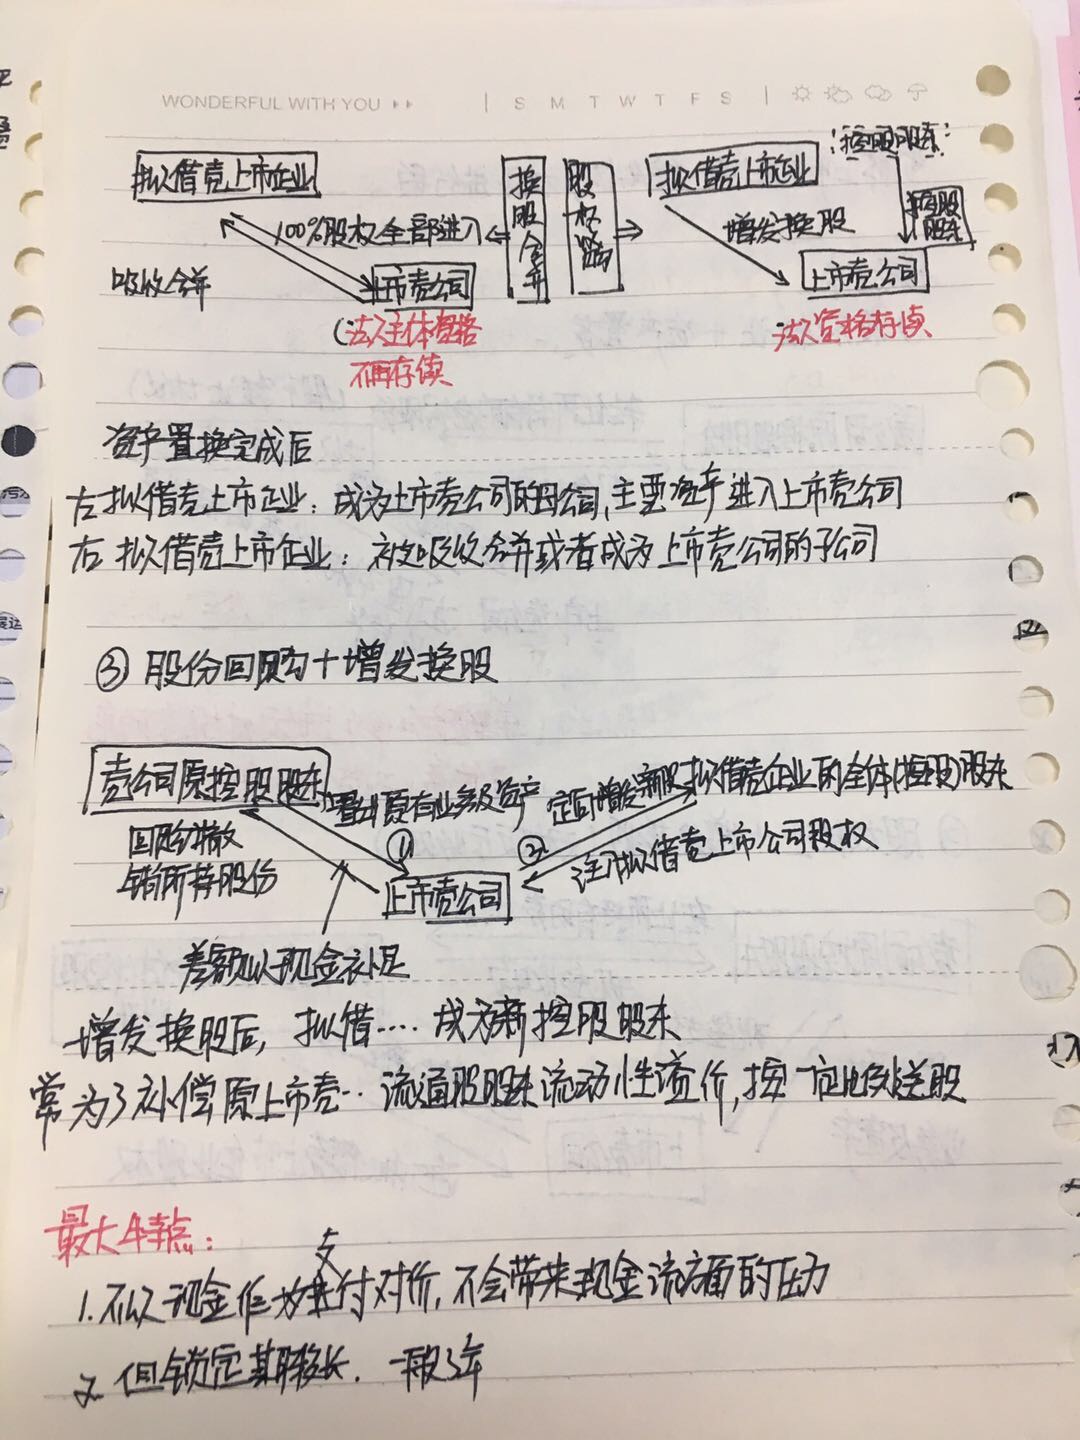 WONDERFUL WITH YOU
S M T W T F S
拟借壳上市企业
100%股权全部进入
吸收合并
上市壳公司
(法人主体资格
不再存续
换股合并
股权
拟借壳上市企业
控股股东
增发换股
控股股东
上市壳公司
法人资格存续
资产置换完成后
左拟借壳上市企业：成为上市壳公司的母公司,主要资产进入上市壳公司
右 拟借壳上市企业：被吸收合并或者成为上市壳公司的子公司
③ 股份回购+增发换股
壳公司原控股股东
置出原有业务及资产
定向增发新股
拟借壳企业的全体(控股)股东
回购撤
销所持股份
①
②
注入拟借壳上市公司股权
上市壳公司
差额以现金补足
增发换股后, 拟借.... 成为新控股股东
常为了补偿原上市壳.. 流通股股东流动性溢价,按一定比例送股
最大特点：
1.不以现金作为支付对价,不会带来现金流方面的压力
2.但锁定期较长. 一般3年